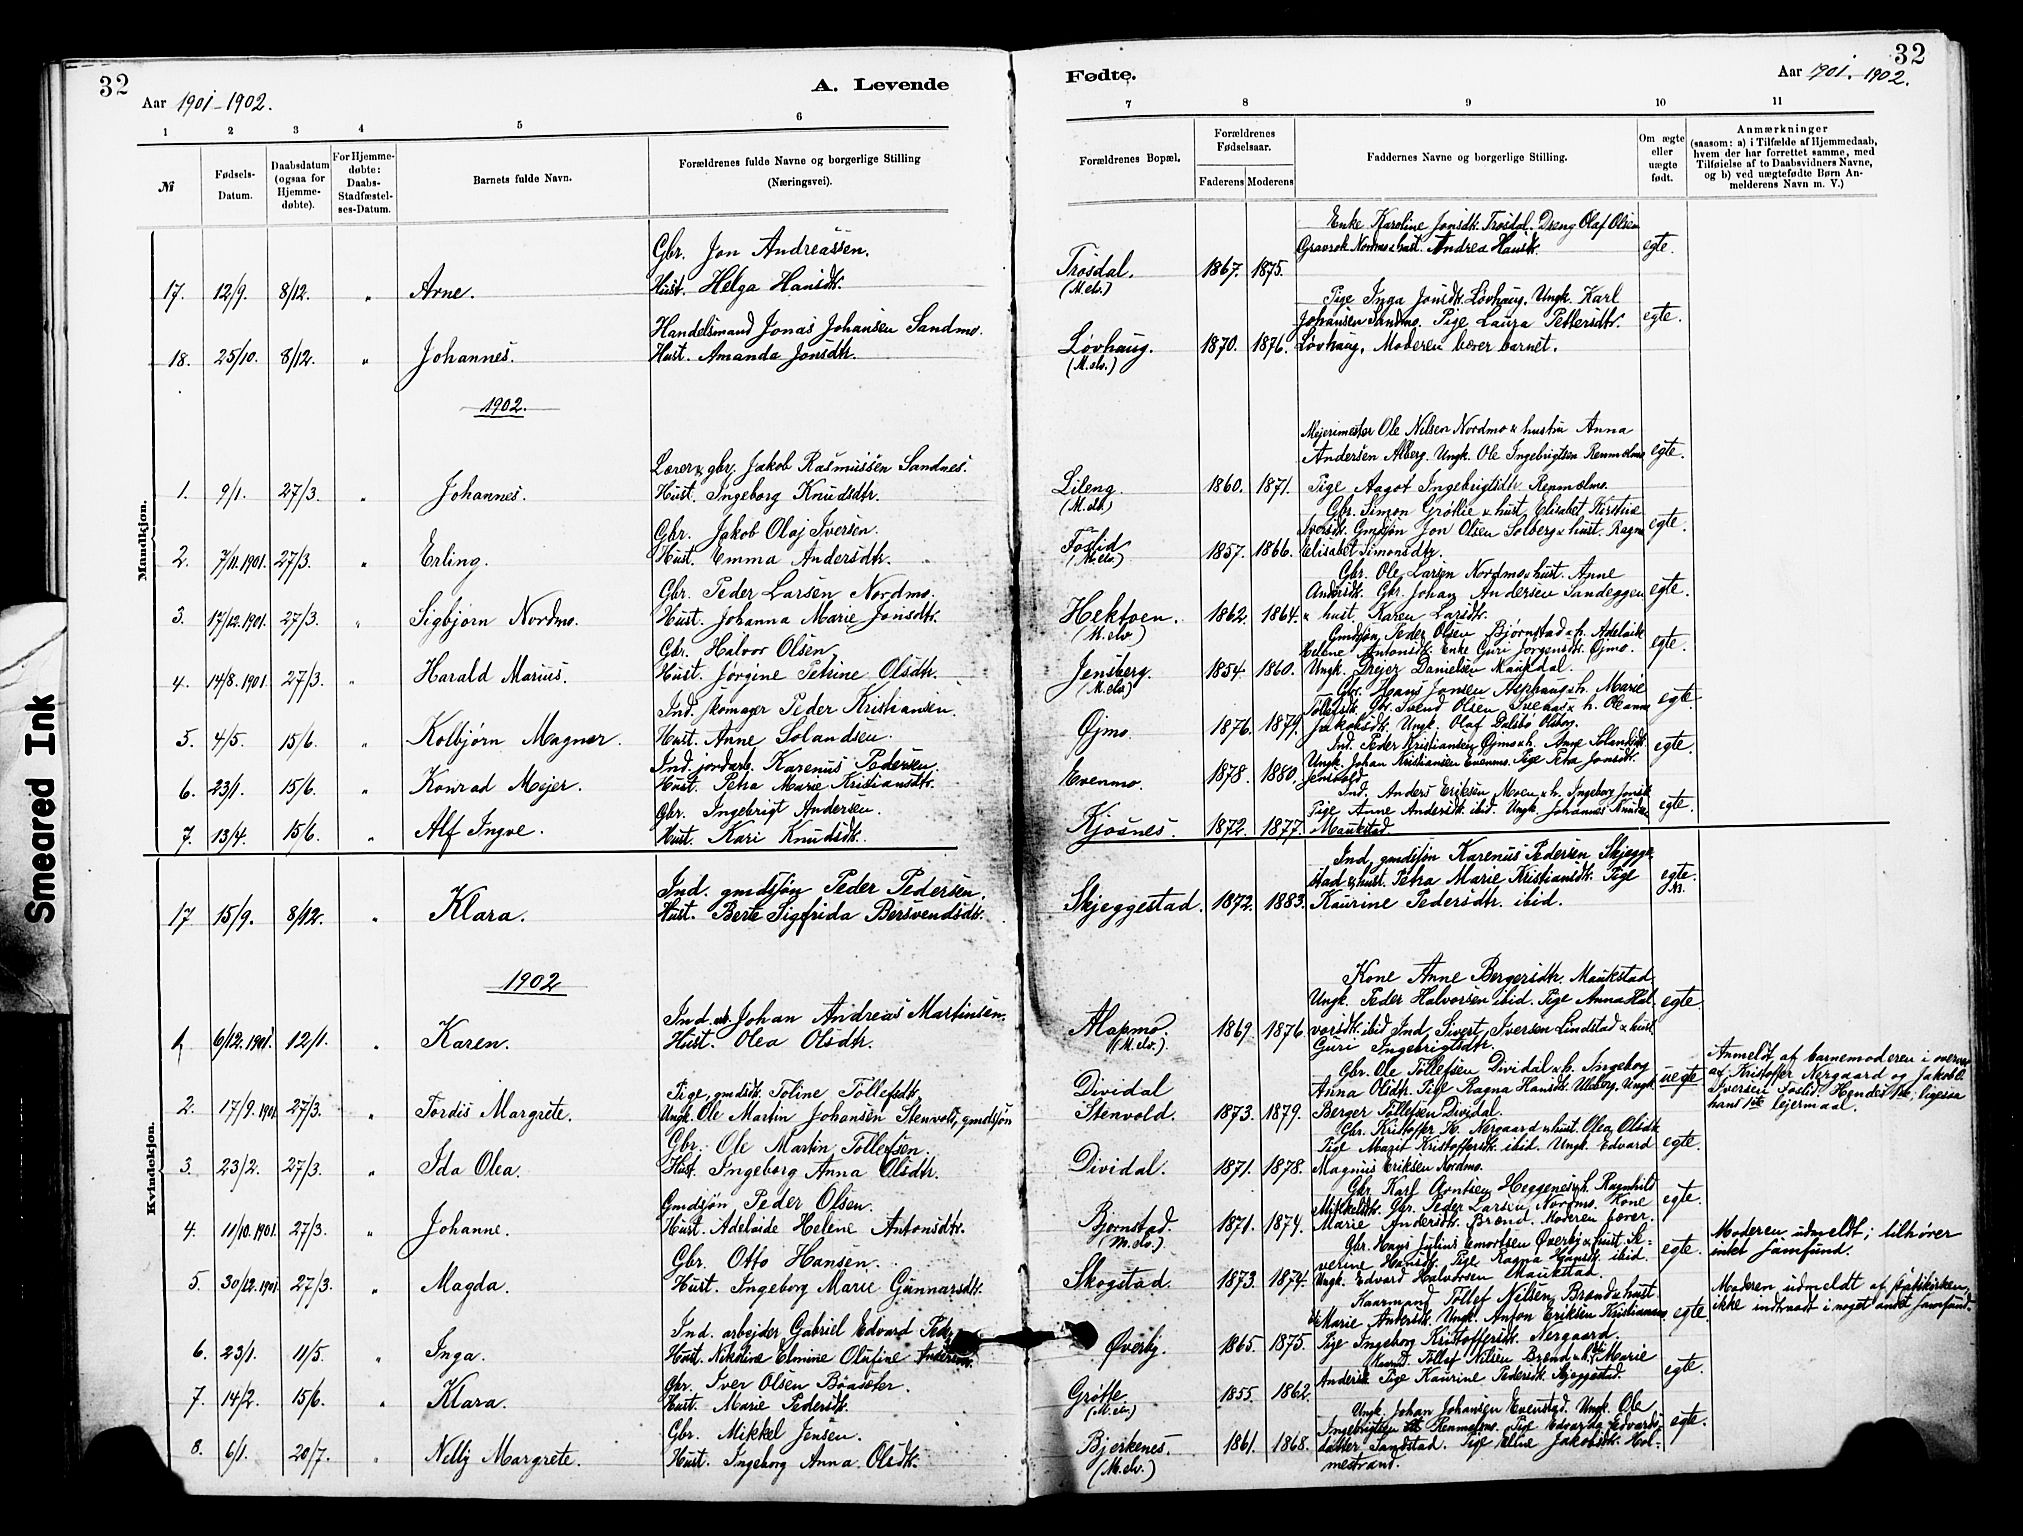 32
Aar 1901-1902.
A. Levende
Fødte.
32
Aar 1901-1902.
1 2 3 4 5 6 7 8 9 10 11
№
Fødsels-
Datum.
Daabsdatum
(ogsaa for
Hjemme-
døbte).
For Hjemme-
døbte:
Daabs-
Stadfæstel-
ses-Datum.
Barnets fulde Navn.
Forældrenes fulde Navne og borgerlige Stilling
(Næringsvei).
Forældrenes Bopæl.
Forældrenes
Fødselsaar.
Faderens Moderens
Faddernes Navne og borgerlige Stilling.
Om ægte
eller
uægte
født.
Anmærkninger
(saasom: a) i Tilfælde af Hjemmedaab,
hvem der har forrettet samme, med
Tilføielse af to Daabsvidners Navne,
og b) ved uægtefødte Børn An-
melderens Navn m. V.)
Mandkjøn.
Gbr. Jon Andreassen.
17. 12/9. 8/12. " Arne. Hust. Helga Hansdtr.
Trosdal. 1867. 1875.
(M.elv.)
Enke Karoline Jonsdtr. Trosdal. Dreng Olaf Olsen
Gravrok Nordmo & hust. Andrea Hansdtr.
egte.
Handelsmand Jonas Johansen Sandmo.
18. 25/10. 8/12. " Johannes. Hust. Amanda Jonsdtr.
Løvhaug. 1870. 1876.
(M.elv.)
Pige Inga Jonsdtr. Løvhaug. Ungk. Karl
Johansen Sandmo. Pige Laura Pettersdtr.
Løvhaug. Moderen bærer barnet.
egte.
1902.
Lærer & gbr. Jakob Rasmussen Sandnes.
1. 9/1. 27/3. " Johannes. Hust. Ingeborg Knudsdtr.
Lileng. 1860. 1871.
(M.elv.)
Mejerimester Ole Nilsen Nordmo & hustru Anna
Andersen Alberg. Ungk. Ole Ingebrigtsen Renmolmo
Pige Aagot Ingebrigtsdtr. Renmolmo.
egte.
Gbr. Jakob Olaj Iversen.
2. 7/11.1901. 27/3. " Erling. Hust. Emma Andersdtr.
Foslid 1857. 1866.
(M.elv.)
Gbr. Simon Grøtte & hust. Elisabet Kirstine
Iversdtr. Gmdsjøn Jon Olsen Solberg & hust. Ragna
Elisabet Simonsdtr.
egte.
Gbr. Peder Larsen Nordmo.
3. 17/12.1901. 27/3. " Sigbjørn Nordmo. Hust. Johanna Marie Jonsdtr.
Hektoen. 1862. 1864.
(M.elv)
Gbr. Ole Larsen Nordmo & hust. Anne
Andersdtr. Gbr. Johan Andersen Sandeggen
& hust. Karen Larsdtr.
egte.
Gbr. Halvor Olsen
4. 14/8.1901. 27/3. " Harald Marius. Hust. Jørgine Petrine Olsdtr.
Jensberg. 1854. 1860.
(M.elv)
Gmdsjøn Peder Olsen Bjørnstad & h. Adelaide
Helene Antonsdtr. Enke Guri Jørgensdtr. Øjmo.
Ungk. Drejer Danielsen Maukdal.
egte.
Ind. skomager Peder Kristiansen.
5. 4/5. 15/6. " Kolbjørn Magnar. Hust. Anne Solandsen.
Øjmo. 1876. 1879.
Gbr. Hans Jansen Asphaug & h. Marie
Tollefsdtr. Gbr. Svend Olsen & h. Oleanna
Jakobsdtr. Ungk. Olaf Dalsbø Olsborg.
egte.
Ind. jordarb. Karenus Pedersen.
6. 23/1. 15/6. " Konrad Mejer. Hust. Petra Marie Kristiansdtr.
Evenmo. 1878. 1880.
Ind. Peder Kristiansen Øjmo & h. Anne Solandsdtr.
Ungk. Johan Kristiansen Evenmo. Pige Petra Jonsdtr.
Jensvold.
egte.
Gbr. Ingebrigt Andersen.
7. 13/4. 15/6. " Alf Ingve. Hust. Kari Knudsdtr.
Kjosnes. 1872. 1877.
Ind. Anders Eriksen Moen & h. Ingeborg Jonsdtr.
Pige Anne Andersdtr. ibid. Ungk. Johannes Knudsen
Maukstad.
egte.
Kvindekjøn.
Ind. gmdsjøn Peder Pedersen.
17 15/9. 8/12. " Klara. Hust. Berte Sigfrida Bersvendsdtr.
Skjeggestad. 1872. 1883.
Ind. gmdsjøn Karenus Pedersen Skjegge
stad & hust. Petra Marie Kristiansdtr. Pige
Kaurine Pedersdtr. ibid.
egte.
1902
Ind. arb. Johan Andreas Martinsen.
1. 6/12.1901. 12/1. " Karen. Hust. Olea Olsdtr.
Alapmo. 1869 1876.
(M.elv.)
Kone Anne Bergersdtr. Maukstad
Ungk. Peder Halvorsen ibid. Pige Anna Hal
vorsdtr. ibid Ind. Sivert Iversen Lindstad & hust
Guri Ingebrigtsdtr.
egte.
Pige, gmdsdtr. Toline Tollefsdtr.
2. 17/9.1901. 27/3. " Tordis Margrete. Ungk. Ole Martin Johansen Stenvold, gmdsjøn
Dividal
Stenvold. 1873. 1879.
Gbr. Ole Tollefsen Dividal & h. Ingeborg
Anna Olsdtr. Pige Ragna Hansdtr. Olsborg. Ungk.
Berger Tollefsen Dividal.
uegte
Anmeldt af barnemoderen i overvær
af Kristoffer Nergaard og Jakob O.
Iversen Foslid. Hendes 1ste, ligesaa
hans 1ste lejermaal.
Gbr. Ole Martin Tollefsen.
3. 23/2. 27/3. " Ida Olea. Hust. Ingeborg Anna Olsdtr.
Dividal. 1871. 1878.
Gbr. Kristoffer K. Nergaard & hust. Olea Olsdtr.
Pige Magit Kristoffersdtr. ibid. Ungk. Edvard
Magnus Eriksen Nordmo.
egte.
Gmdsjøn Peder Olsen.
4. 11/10.1901. 27/3. " Johanne. Hust. Adelaide Helene Antonsdtr.
Bjørnstad. 1871. 1874.
(M.elv.)
Gbr. Karl Arntsen Heggenes & h. Ragnhild
Mikkelsdtr. Gbr. Peder Larsen Nordmo. Kone
Marie Andersdtr. Brænd. Moderen bærer.
egte.
Moderen udmeldt; tilhører
intet samfund.
Gbr. Otto Hansen.
5. 30/12.1901. 27/3. " Magda. Hust. Ingeborg Marie Gunnarsdtr.
Skogstad. 1873. 1874.
Gbr. Hans Julius Emortsen Øverby & hust. Se-
verine Hansdtr. Pige Ragna Hansdtr. ibid.
Ungk. Edvard Halvorsen Maukstad.
egte.
Moderen udmeldt af statskirken,
ikke indtraadt i noget andet samfund.
Ind. arbejder Gabriel Edvard Peder
6. 23/1. 11/5. " Inga. Hust. Nikoline Elmine Olufine Andersen.
Øverby. 1865. 1875.
Kaarmand Tollef Nilsen Brænd & hust.
Marie Andersdtr. Ungk. Anton Eriksen Kristiansen
Pige Ingeborg Kristoffersdtr. Nergaard.
egte.
Gbr. Iver Olsen Bönsæter.
7. 14/2. 15/6. " Klara. Hust. Marie Pedersdtr.
Grøtte 1855. 1862.
(M.elv.)
Kaarmd. Tollef Nilsen Brænd & h. Marie
Andersdtr. Pige Kaurine Pedersdtr. Skjeggestad.
egte.
Gbr. Mikkel Jensen.
8. 6/1. 20/7. " Nelly Margrete. Hust. Ingeborg Anna Olsdtr.
Bjerkenes. 1861. 1868.
(M.elv.)
Ungk. Johan Johansen Evenstad. Ungk. Ole
Ingebrigtsen Renmolmo. Pige Edvarda Edvards
datter Sandstad. Pige Ellie Jakobsdtr. Hol-
mestrand.
egte.
Smeared Ink